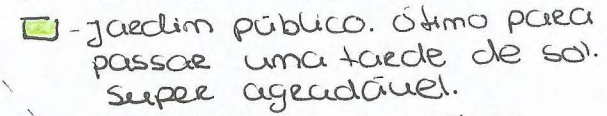 - Jardim público. Ótimo para
passar uma tarde de sol.
Super agradável.